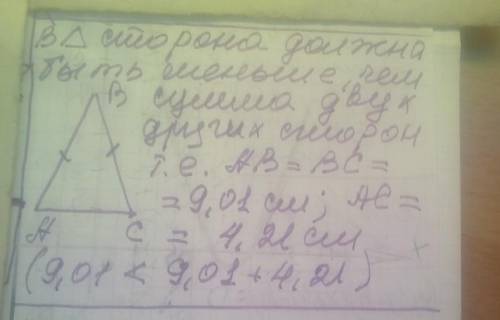 В △ сторона должна
быть меньше, чем
B
сумма двух
других сторон
т.е. AB = BC =
= 9,01 см; AC =
A C = 4,21 см
(9,01 < 9,01 + 4,21)